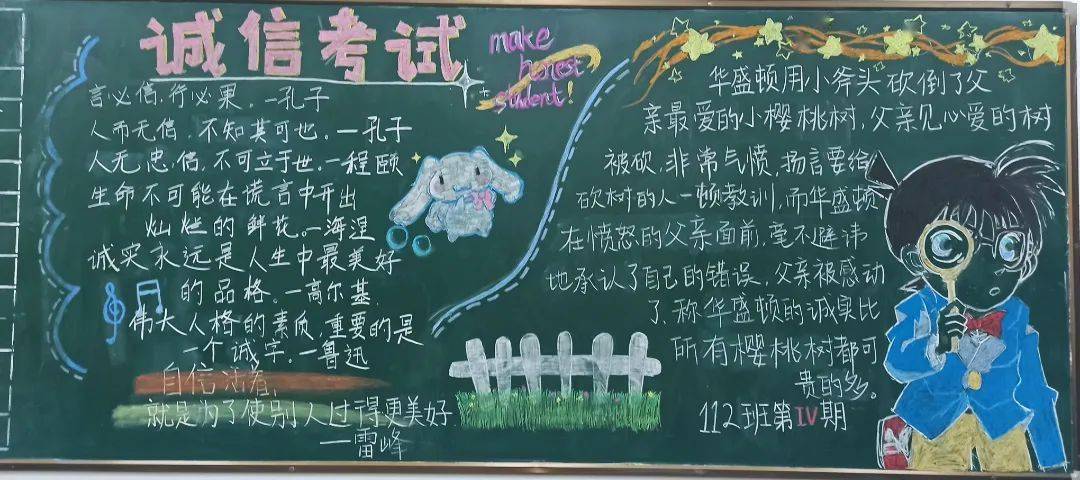 诚信考试
make
honest
student!
言必信,行必果。—孔子
人而无信,不知其可也。—孔子
人无忠信,不可立于世。—程颐
生命不可能在谎言中开出
灿烂的鲜花。—海涅
诚实永远是人生中最美好
的品格。—高尔基
伟大人格的素质,重要的是
一个诚字。—鲁迅
自信活着,
就是为了使别人过得更美好
—雷峰
华盛顿用小斧头砍倒了父
亲最爱的小樱桃树,父亲见心爱的树
被砍,非常气愤,扬言要给
砍树的人一顿教训,而华盛顿
在愤怒的父亲面前,毫不避讳
地承认了自己的错误。父亲被感动
了,称华盛顿的诚实比
所有樱桃树都可
贵的多。
112班第IV期